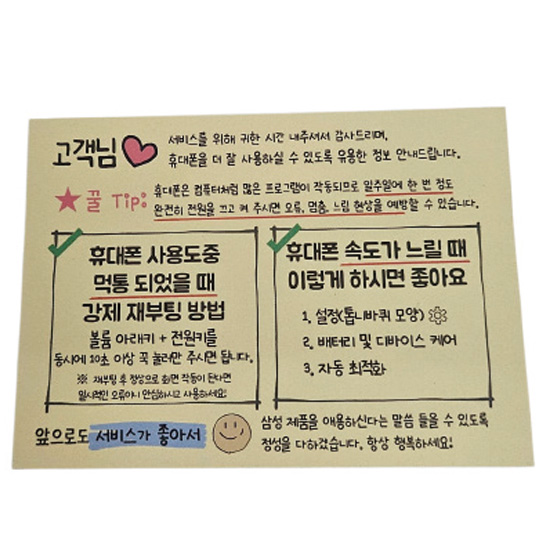 고객님
서비스를 위해 귀한 시간 내주셔서 감사드리며,
휴대폰을 더 잘 사용하실 수 있도록 유용한 정보 안내드립니다.
꿀 Tip:
휴대폰은 컴퓨터처럼 많은 프로그램이 작동되므로 일주일에 한 번 정도
완전히 전원을 끄고 켜 주시면 오류, 멈춤, 느림 현상을 예방할 수 있습니다.
휴대폰 사용도중
먹통 되었을 때
강제 재부팅 방법
볼륨 아래키 + 전원키를
동시에 10초 이상 꼭 눌러만 주시면 됩니다.
※ 재부팅 후 정상으로 화면 작동이 된다면
일시적인 오류이니 안심하시고 사용하세요!
휴대폰 속도가 느릴 때
이렇게 하시면 좋아요
1. 설정(톱니바퀴 모양)
2. 배터리 및 디바이스 케어
3. 자동 최적화
앞으로도 서비스가 좋아서
삼성 제품을 애용하신다는 말씀 들을 수 있도록
정성을 다하겠습니다. 항상 행복하세요!